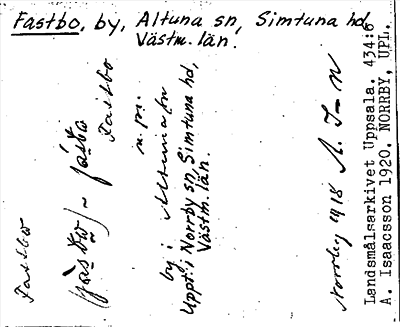 Fastbo, by, Altuna sn, Simtuna hd
Västm. län.
Fastbo
Fastbo
by i Altuna sn
Uppt. i Norrby sn, Simtuna hd,
Västm. län.
Norrby 1918 A. I-n
Landsmålsarkivet Uppsala. 434:6
A. Isaacsson 1920. NORRBY, UPL.